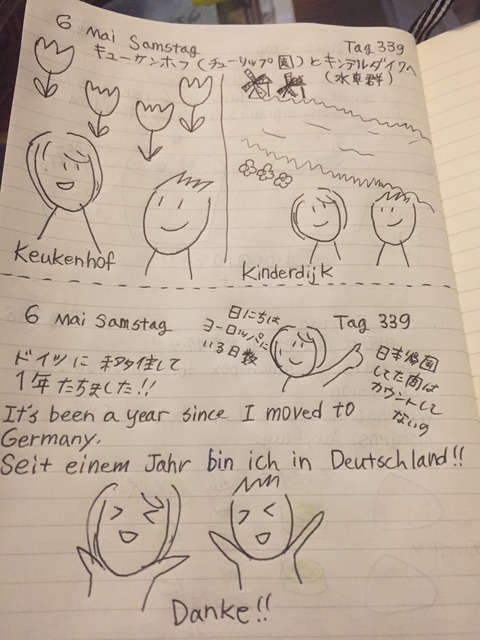 6 Mai Samstag
Tag 339
キューケンホフ(チューリップ園)とキンデルダイクへ
(水車群)
Keukenhof
Kinderdijk
6 Mai Samstag
Tag 339
日にちは
ヨーロッパに
いる日数
日本帰国
してた間は
カウントして
ないの
ドイツに移住して
1年たちました!!
It's been a year since I moved to
Germany.
Seit einem Jahr bin ich in Deutschland!!
Danke!!